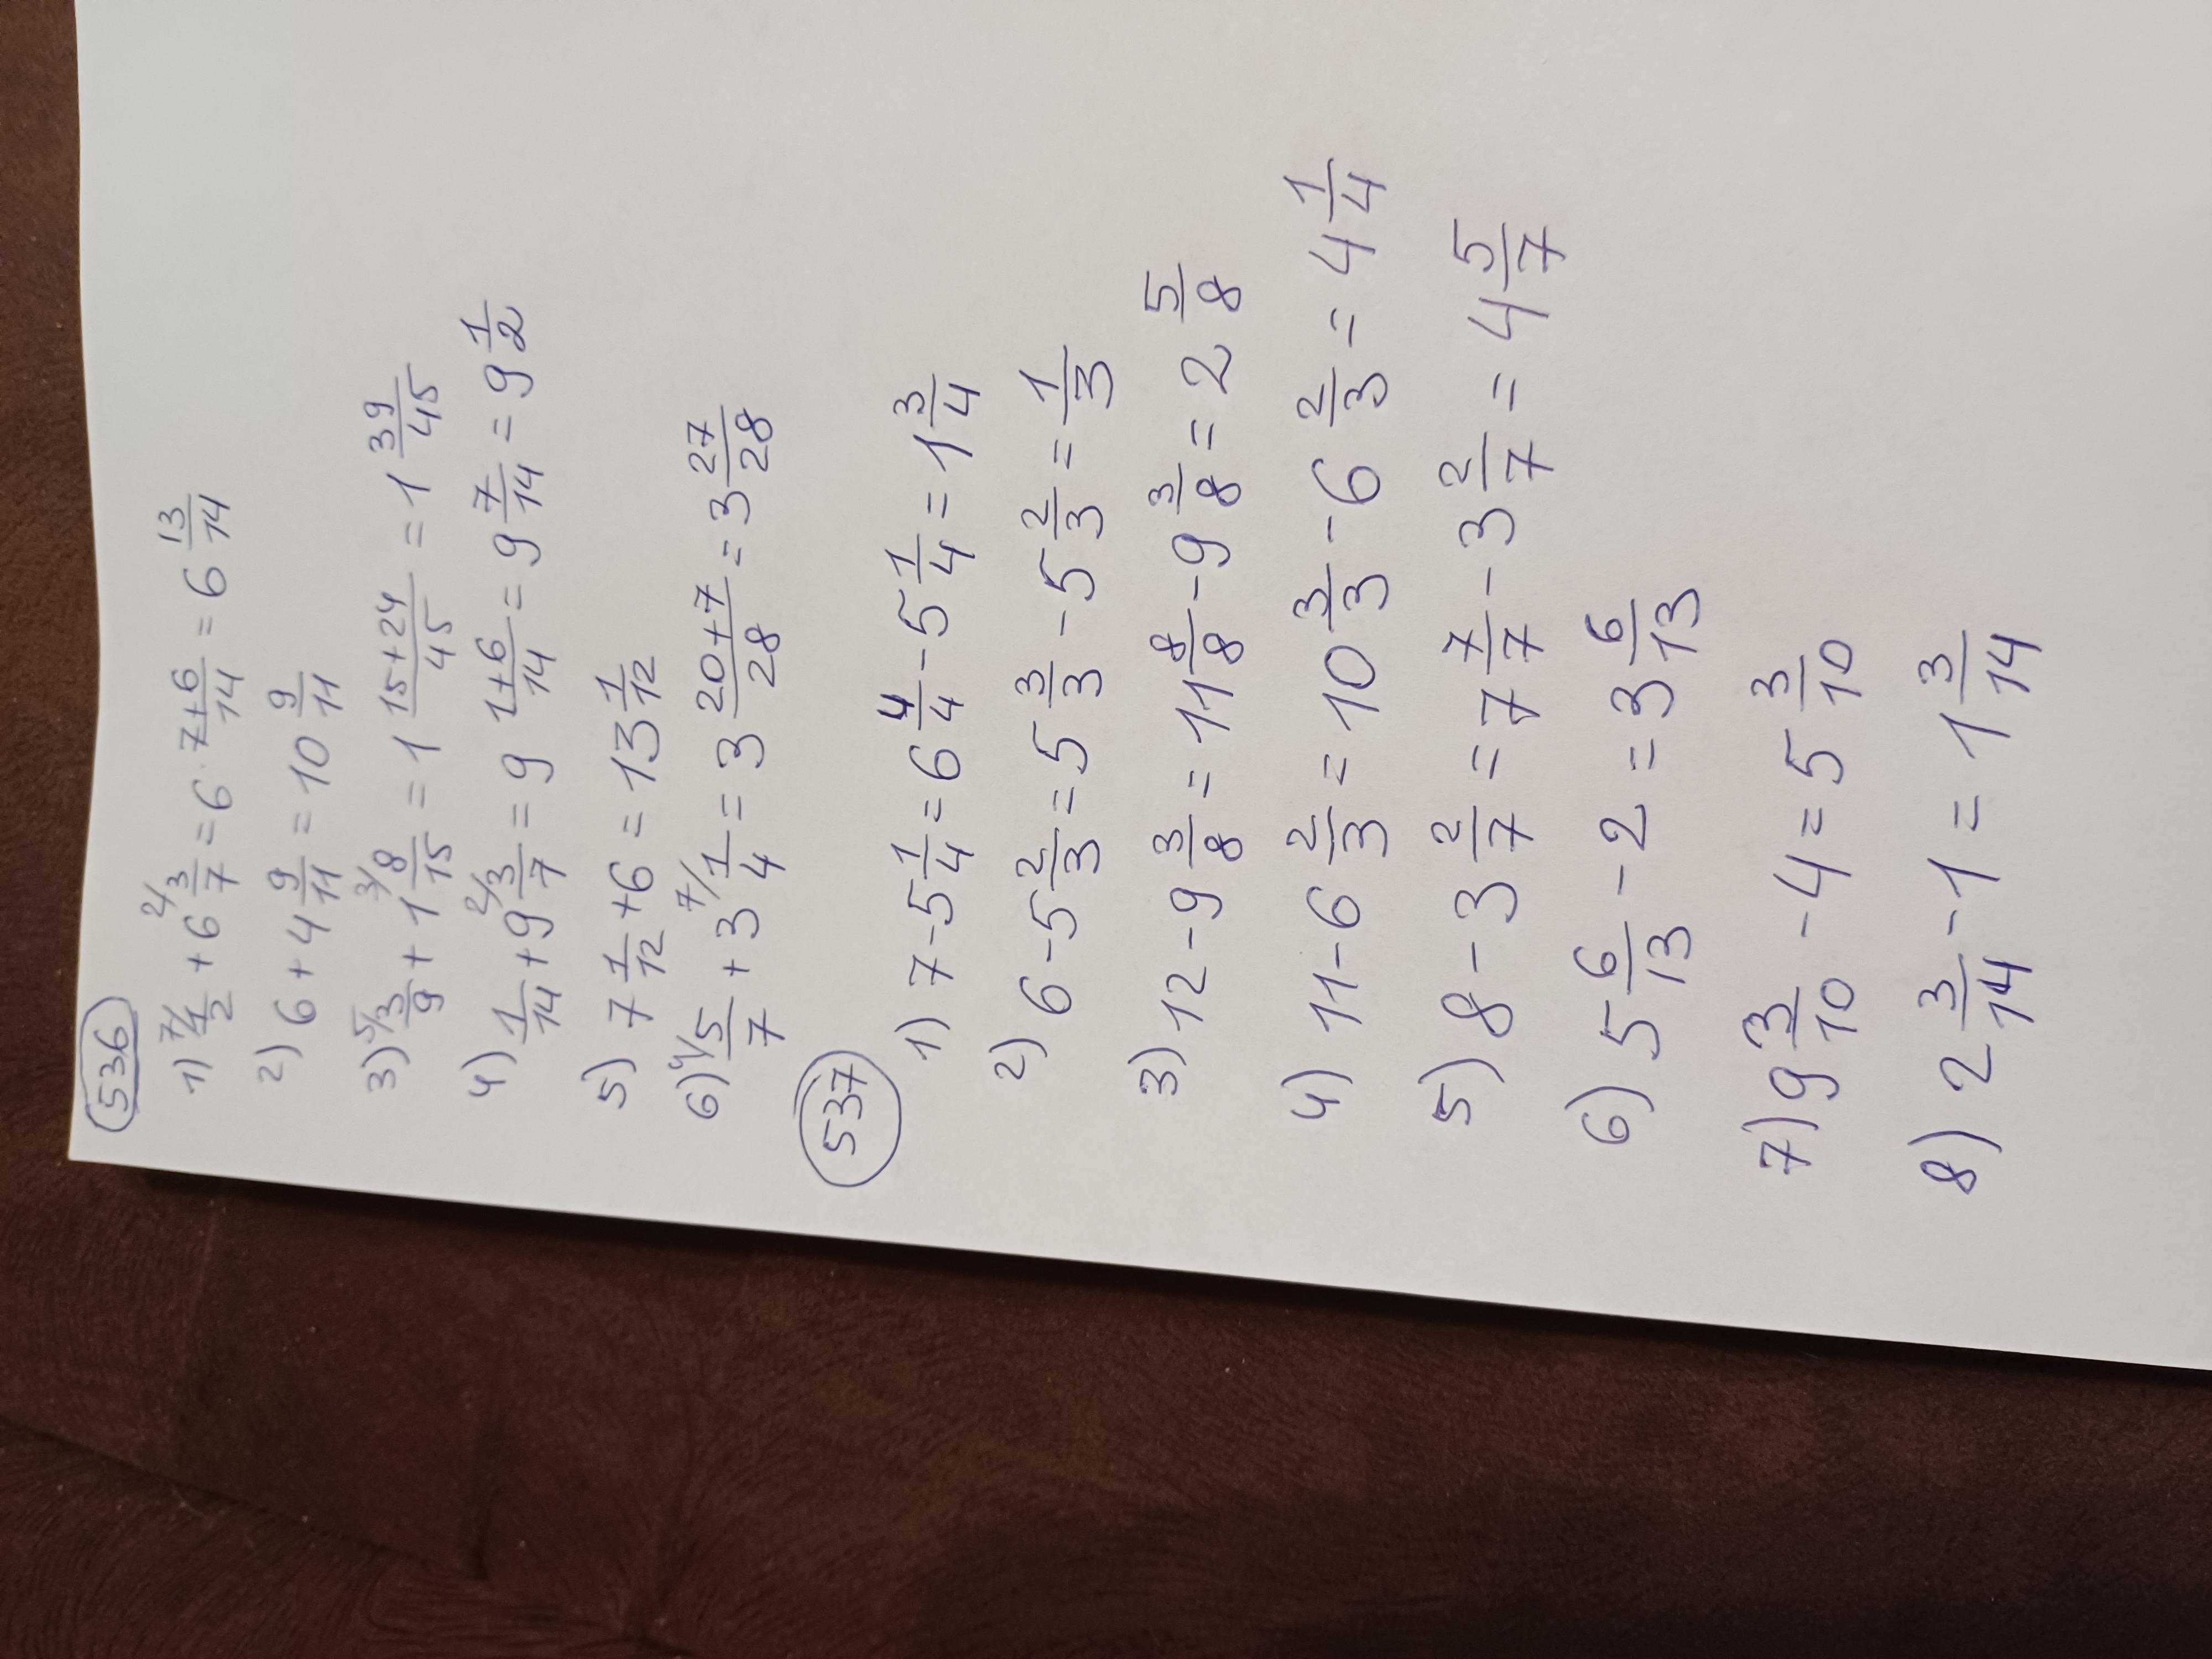 536
1) 7/ 1/2 + 6 2/ 3/7 = 6 (7+6)/14 = 6 13/14
2) 6 + 4 9/11 = 10 9/11
3) 5/ 3/9 + 1 3/ 8/15 = 1 (15+24)/45 = 1 39/45
4) 1/14 + 9 2/ 3/7 = 9 (1+6)/14 = 9 7/14 = 9 1/2
5) 7 1/12 + 6 = 13 1/12
6) 4/ 5/7 + 3 7/ 1/4 = 3 (20+7)/28 = 3 27/28
537
1) 7 - 5 1/4 = 6 4/4 - 5 1/4 = 1 3/4
2) 6 - 5 2/3 = 5 3/3 - 5 2/3 = 1/3
3) 12 - 9 3/8 = 11 8/8 - 9 3/8 = 2 5/8
4) 11 - 6 2/3 = 10 3/3 - 6 2/3 = 4 1/4
5) 8 - 3 2/7 = 7 7/7 - 3 2/7 = 4 5/7
6) 5 6/13 - 2 = 3 6/13
7) 9 3/10 - 4 = 5 3/10
8) 2 3/14 - 1 = 1 3/14